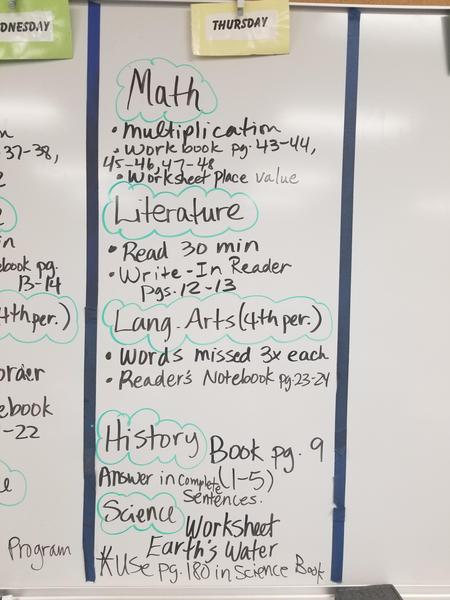 DNESDAY
37-38,
in
ebook pg.
13-14
(4th per.)
order
ebook
-22
Program
THURSDAY
Math
• Multiplication
• Workbook pg. 43-44,
45-46, 47-48
• Worksheet Place value
Literature
• Read 30 min
• Write-In Reader
Pgs. 12-13
Lang. Arts (4th per.)
• Words missed 3x each
• Reader's Notebook pg. 23-24
History Book pg. 9
Answer in complete (1-5)
sentences.
Science Worksheet
Earth's Water
*Use pg. 180 in Science Book